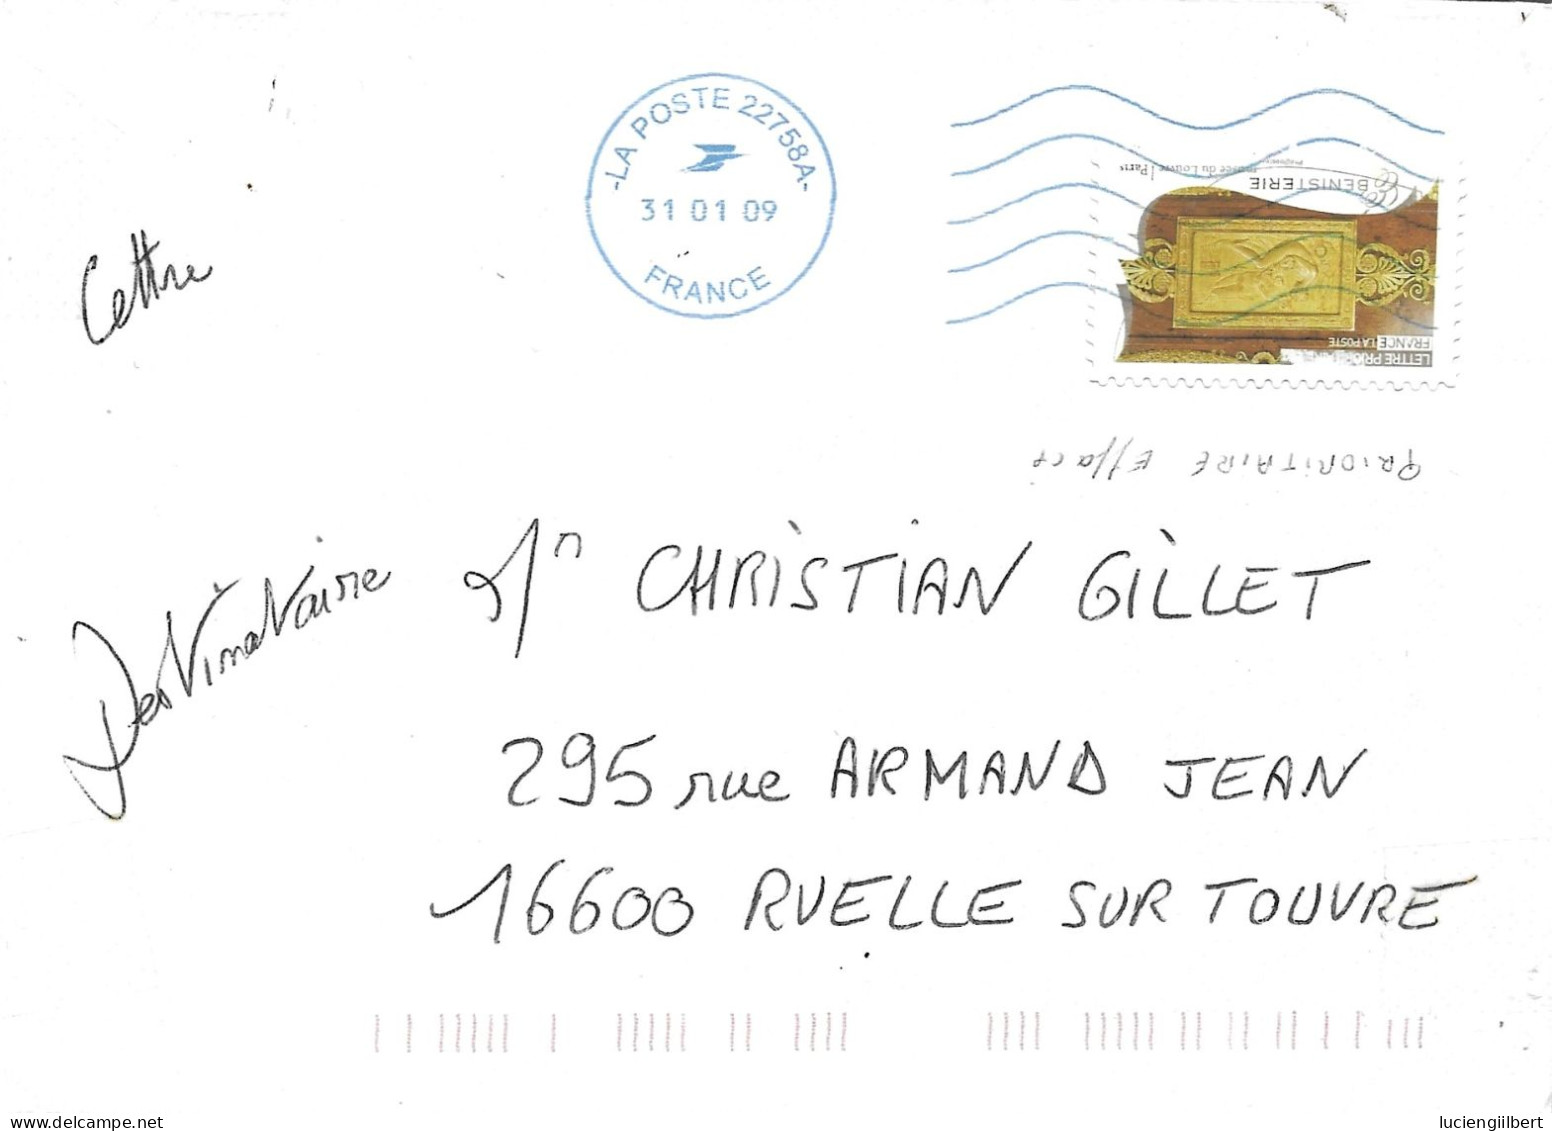 -LA POSTE 22758A-
31 01 09
FRANCE
musée du Louvre | Paris
BENISTERIE
FRANCE LA POSTE
LETTRE PRIO
PRIORITAIRE Effacé
Lettre
Destinataire
Mr CHRISTIAN GILLET
295 rue ARMAND JEAN
16600 RUELLE SUR TOUVRE
www.delcampe.net
luciengilbert